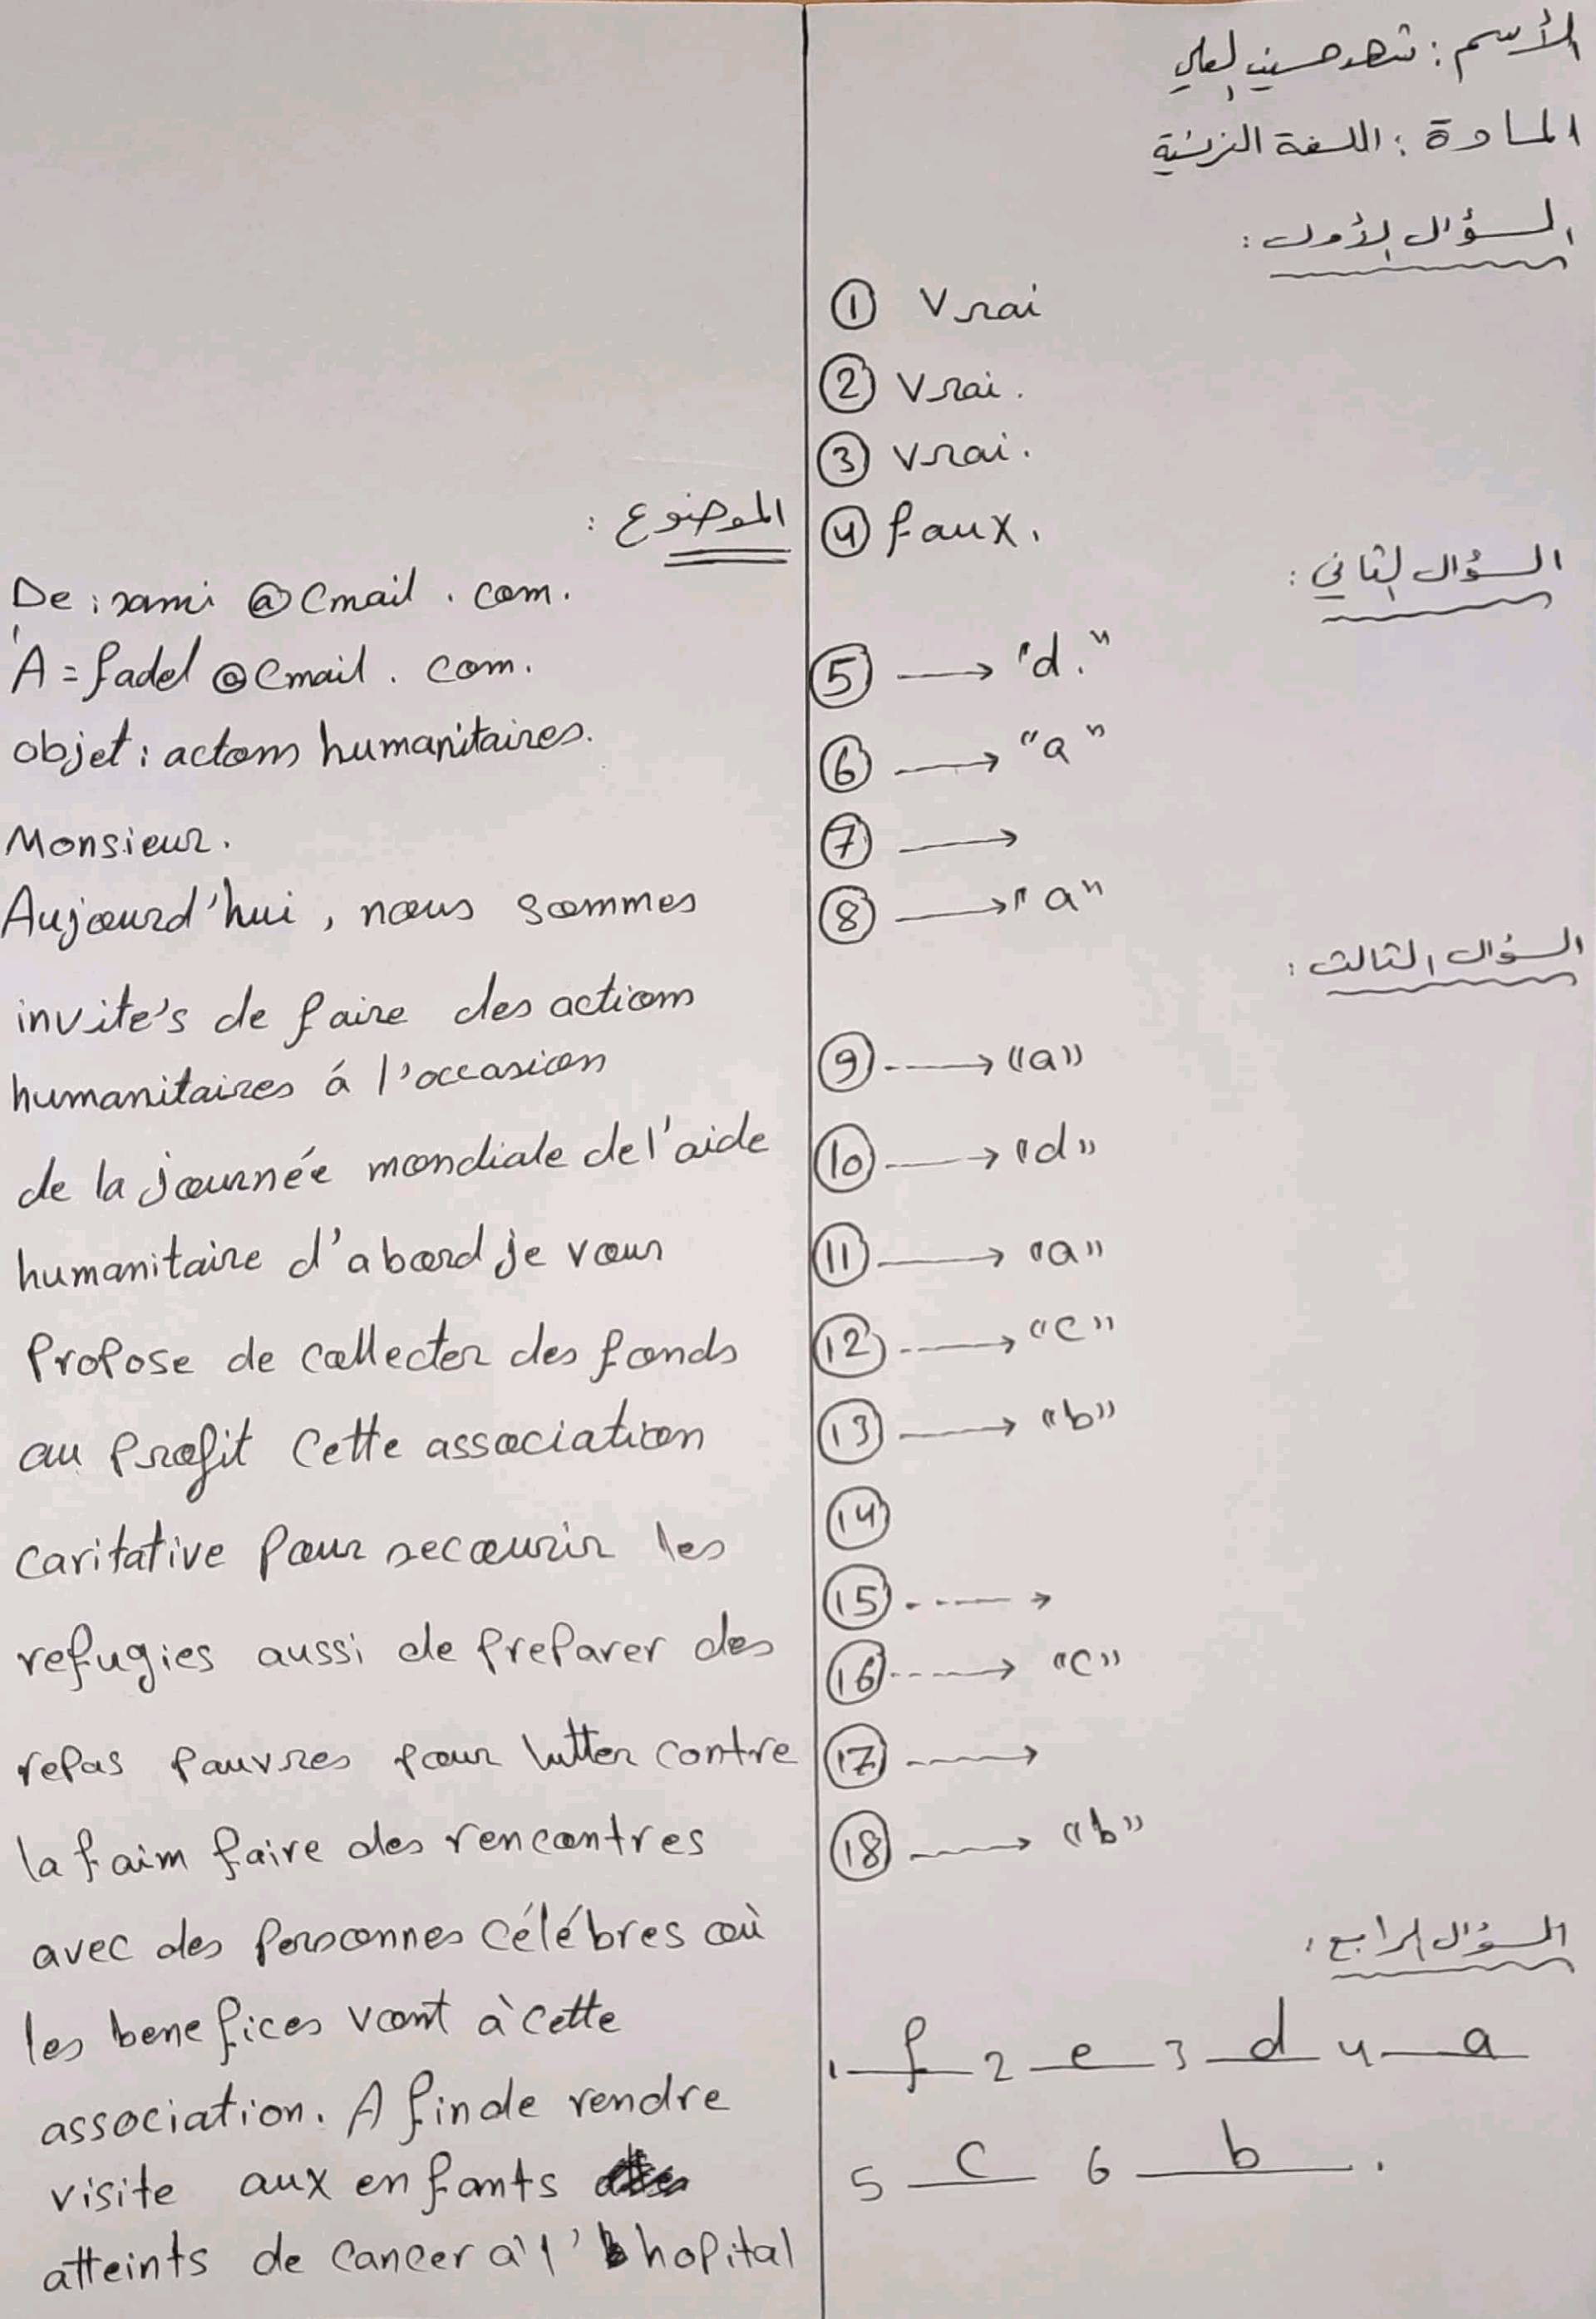 الأسم : شهد حسين العلي
المادة : اللغة الفرنسية
السؤال الأول :
① Vrai
② Vrai.
③ Vrai.
④ faux.
السؤال الثاني :
⑤ → "d."
⑥ → "a"
⑦ →
⑧ → "a"
السؤال الثالث :
⑨ → "a"
⑩ → "d"
⑪ → "a"
⑫ → "c"
⑬ → "b"
⑭
⑮ →
⑯ → "c"
⑰ →
⑱ → "b"
السؤال الرابع :
1 f 2 e 3 d 4 a
5 c 6 b .
الموضوع :
De : rami @ Cmail . com.
A = fadel @ Cmail . com.
objet : actons humanitaires.
Monsieur.
Aujourd'hui, nous sommes
invité's de faire des actions
humanitaires á l'occasion
de la journée mondiale de l'aide
humanitaire d'abord je vous
Propose de collecter des fonds
au Profit cette association
caritative Pour secourir les
refugies aussi de preparer des
repas pauvres pour lutter contre
la faim faire des rencontres
avec des Personnes célébres où
les benefices vont à cette
association. A fin de rendre
visite aux enfants
atteints de cancer à l'hopital